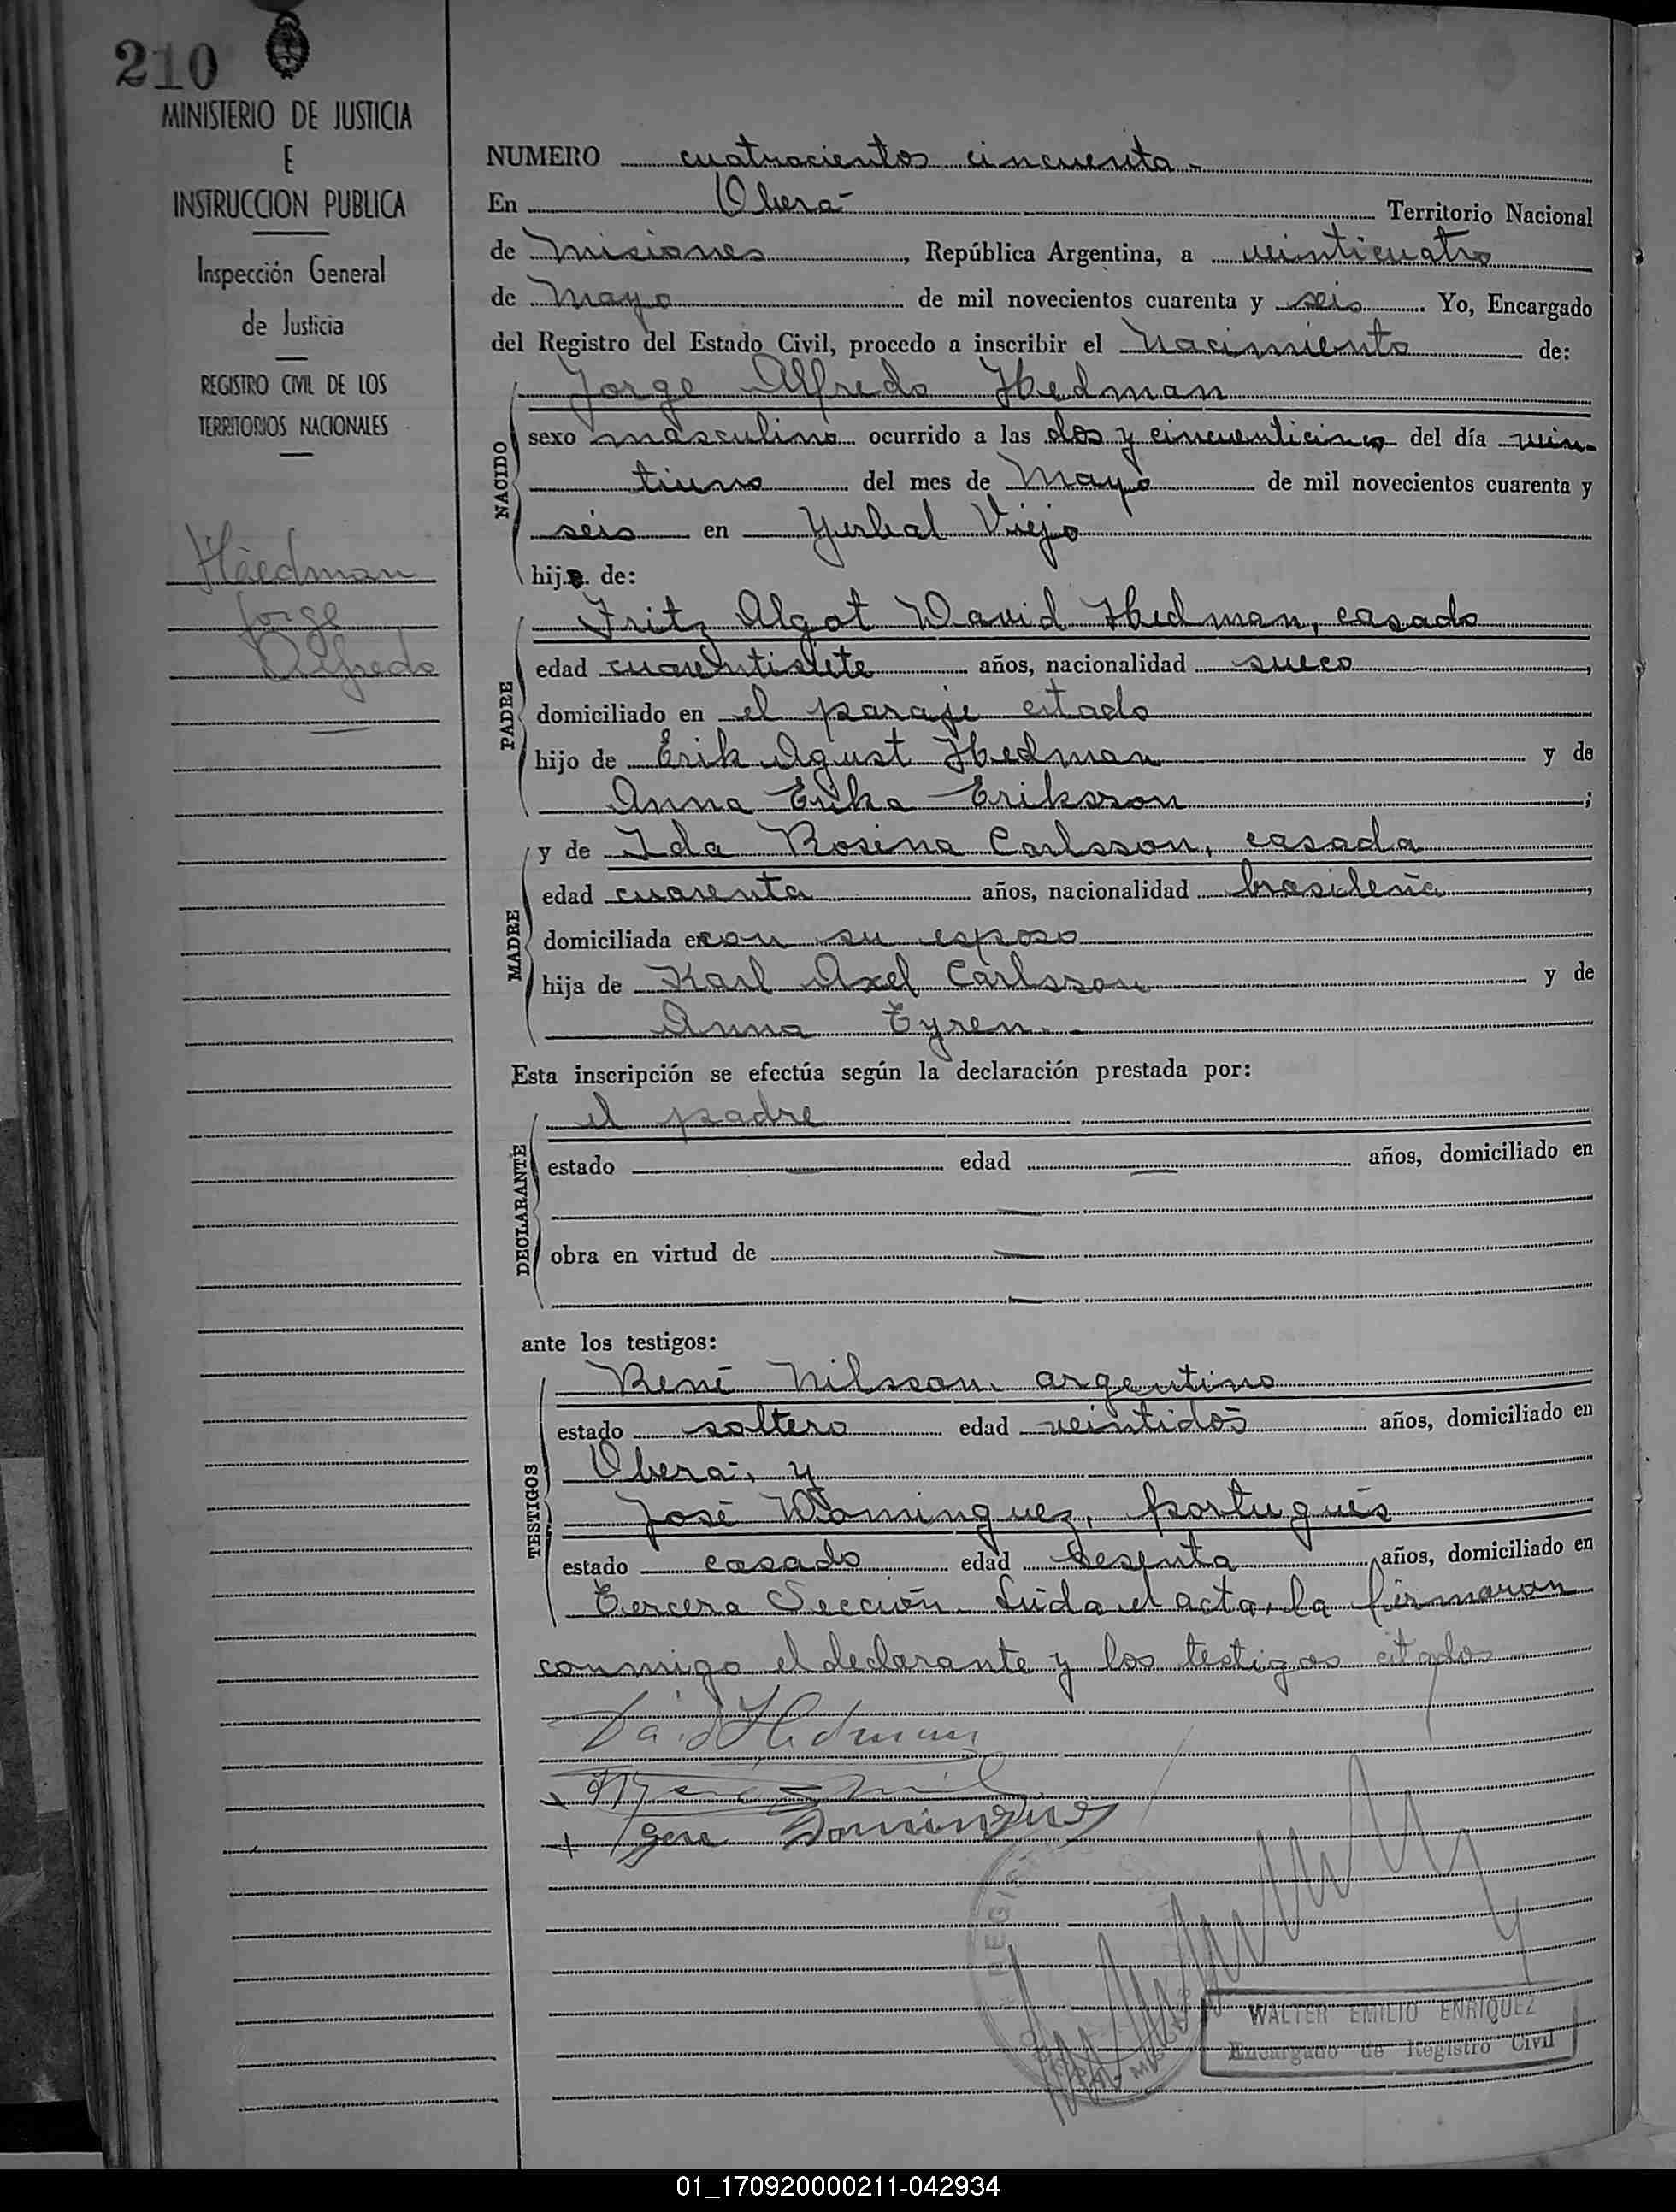 210
MINISTERIO DE JUSTICIA
E
INSTRUCCION PUBLICA
Inspección General
de Justicia
REGISTRO CIVIL DE LOS
TERRITORIOS NACIONALES
Hedman
Jorge
Alfredo
NUMERO cuatrocientos cincuenta.-
En Oberá Territorio Nacional
de Misiones, República Argentina, a veinticuatro
de Mayo de mil novecientos cuarenta y seis. Yo, Encargado
del Registro del Estado Civil, procedo a inscribir el Nacimiento de:
NACIDO
Jorge Alfredo Hedman
sexo masculino ocurrido a las dos y cincuenticinco del día vein-
tiuno del mes de Mayo de mil novecientos cuarenta y
seis en Yerbal Viejo
hijo de:
PADRE
Fritz Algot David Hedman, casado
edad cuarentisiete años, nacionalidad sueco,
domiciliado en el paraje citado
hijo de Erik Agust Hedman y de
Anna Erika Eriksson;
MADRE
y de Ida Rosina Carlsson, casada
edad cuarenta años, nacionalidad brasileña,
domiciliada en con su esposo
hija de Karl Axel Carlsson y de
Anna Eyren.-
Esta inscripción se efectúa según la declaración prestada por:
DECLARANTE
el padre
estado edad años, domiciliado en
obra en virtud de
ante los testigos:
TESTIGOS
René Nilsson argentino
estado soltero edad veintidós años, domiciliado en
Oberá, y
José Dominguez, portugués
estado casado edad sesenta años, domiciliado en
Tercera Sección. Leida el acta, la firmaron
conmigo el declarante y los testigos citados
David Hedman
Jose Dominguez
REGIS
WALTER EMILIO ENRIQUEZ
Encargado de Registro Civil
01_170920000211-042934